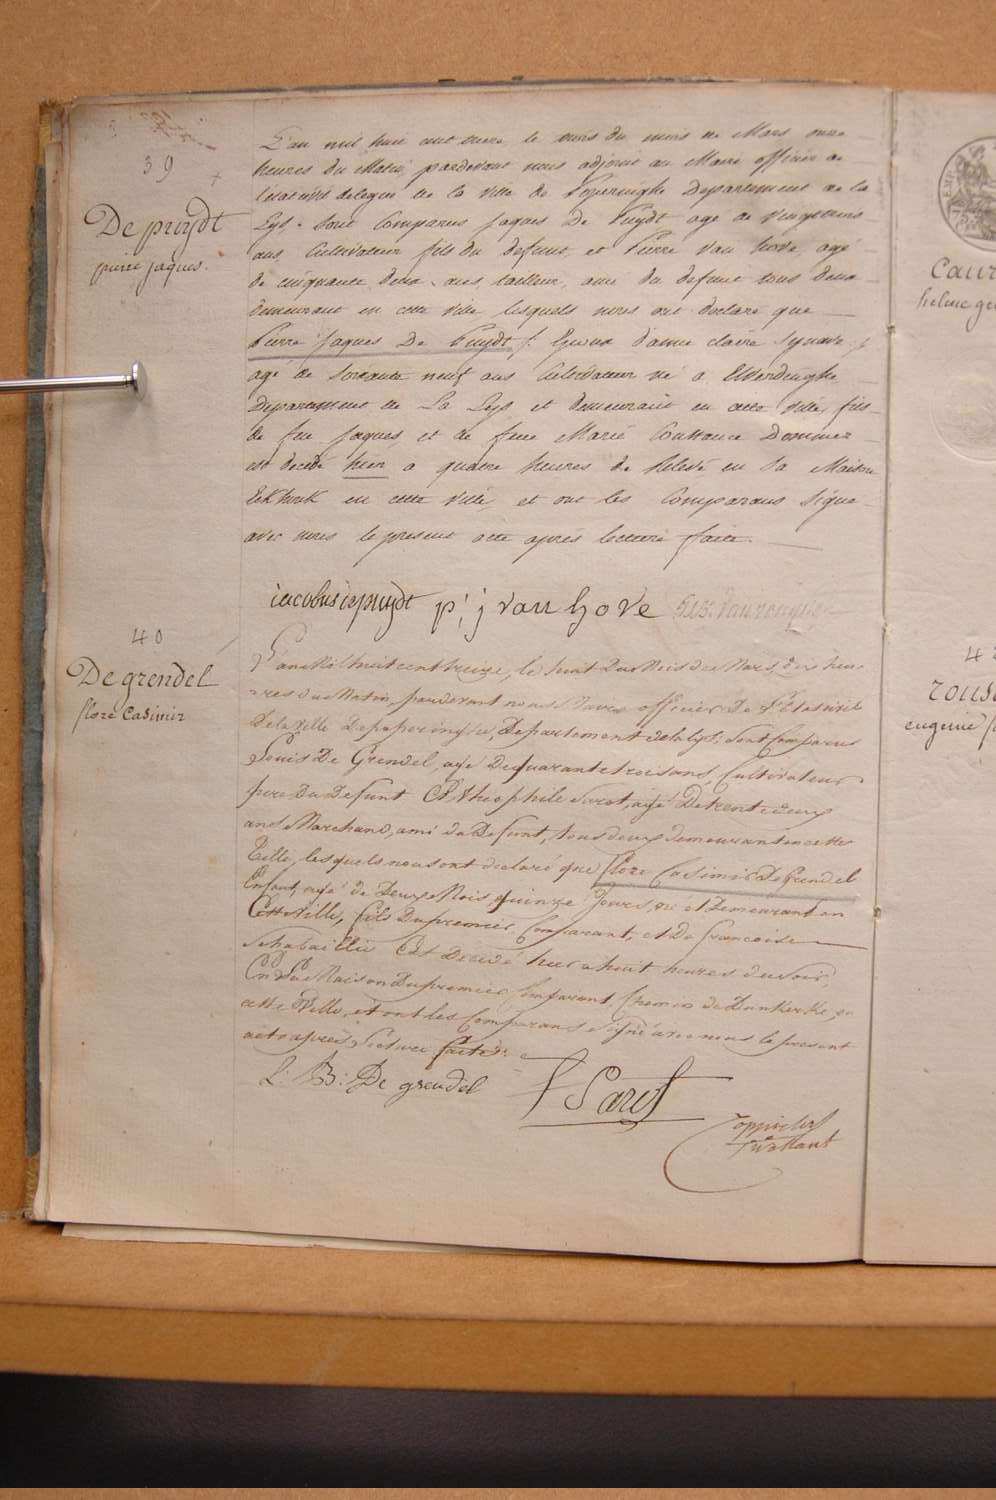 39
De puydt
pierre jaques.
L'an mil huit cent treize le onze du mois de Mars onze
heures du Matin, pardevant nous adjoint au Maire officier de
l'état civil delegué de la Ville de Poperinghe Departement de la
Lys. Sont Comparus Jaques De Puydt agé de vingt
ans Cultivateur fils du defunt, et Pierre Van hove, agé
de cinquante deux ans, tailleur, ami du defunt tous deux
demeurant en cette Ville lesquels nous ont declaré que
Pierre Jaques De Puydt, Epoux d'anne claire
agé de Soixante neuf ans Cultivateur né a Elverdinghe
Departement de La Lys et demeurant en cette Ville, fils
de feu Jaques, et de feue Marie Constance
est decedé hier a quatre heures de relevé en sa Maison
Eekhouk en cette Ville, et ont les Comparans Signé
avec nous le present acte après lecture faite.
iacobus depuydt p, j van hove
40
De grendel
flore Casimir
L'an Mil huit cent treize, le huit du Mois de Mars, dix heu-
res du Matin, pardevant nous Maire officier De l'Etat civil
De la Ville De poperinghe, Departement de la lys, sont Comparus
Louis De Grendel, agé De quarante trois ans, Cultivateur
pere Du Defunt Et theophile Parot, agé De trente deux
ans Marchand, ami du Defunt, tous deux demeurant en cette
Ville, lesquels nous ont declaré que flore Casimir De Grendel
Enfant, agé de Deux Mois quinze Jours, né et Demeurant en
Cette Ville, fils Du premier Comparant, et De francoise
Est Decedé hier a huit heures du soir,
En La Maison Du premier Comparant, Chemin de Dunkerke, en
cette Ville, et ont les Comparans signé avec nous le present
acte après Lecture faite.
L: B: De grendel
T Parot